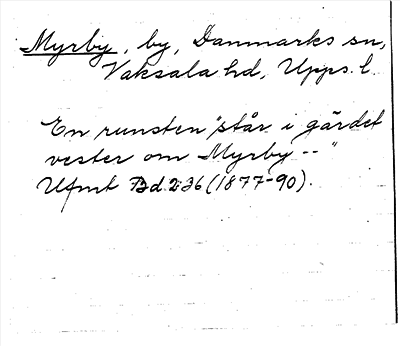 Myrby, by, Danmarks sn,
Vaksala hd, Upps. l.
En runsten "står i gärdet
vester om Myrby --"
Ufmt Bd 2:36 (1877-90).